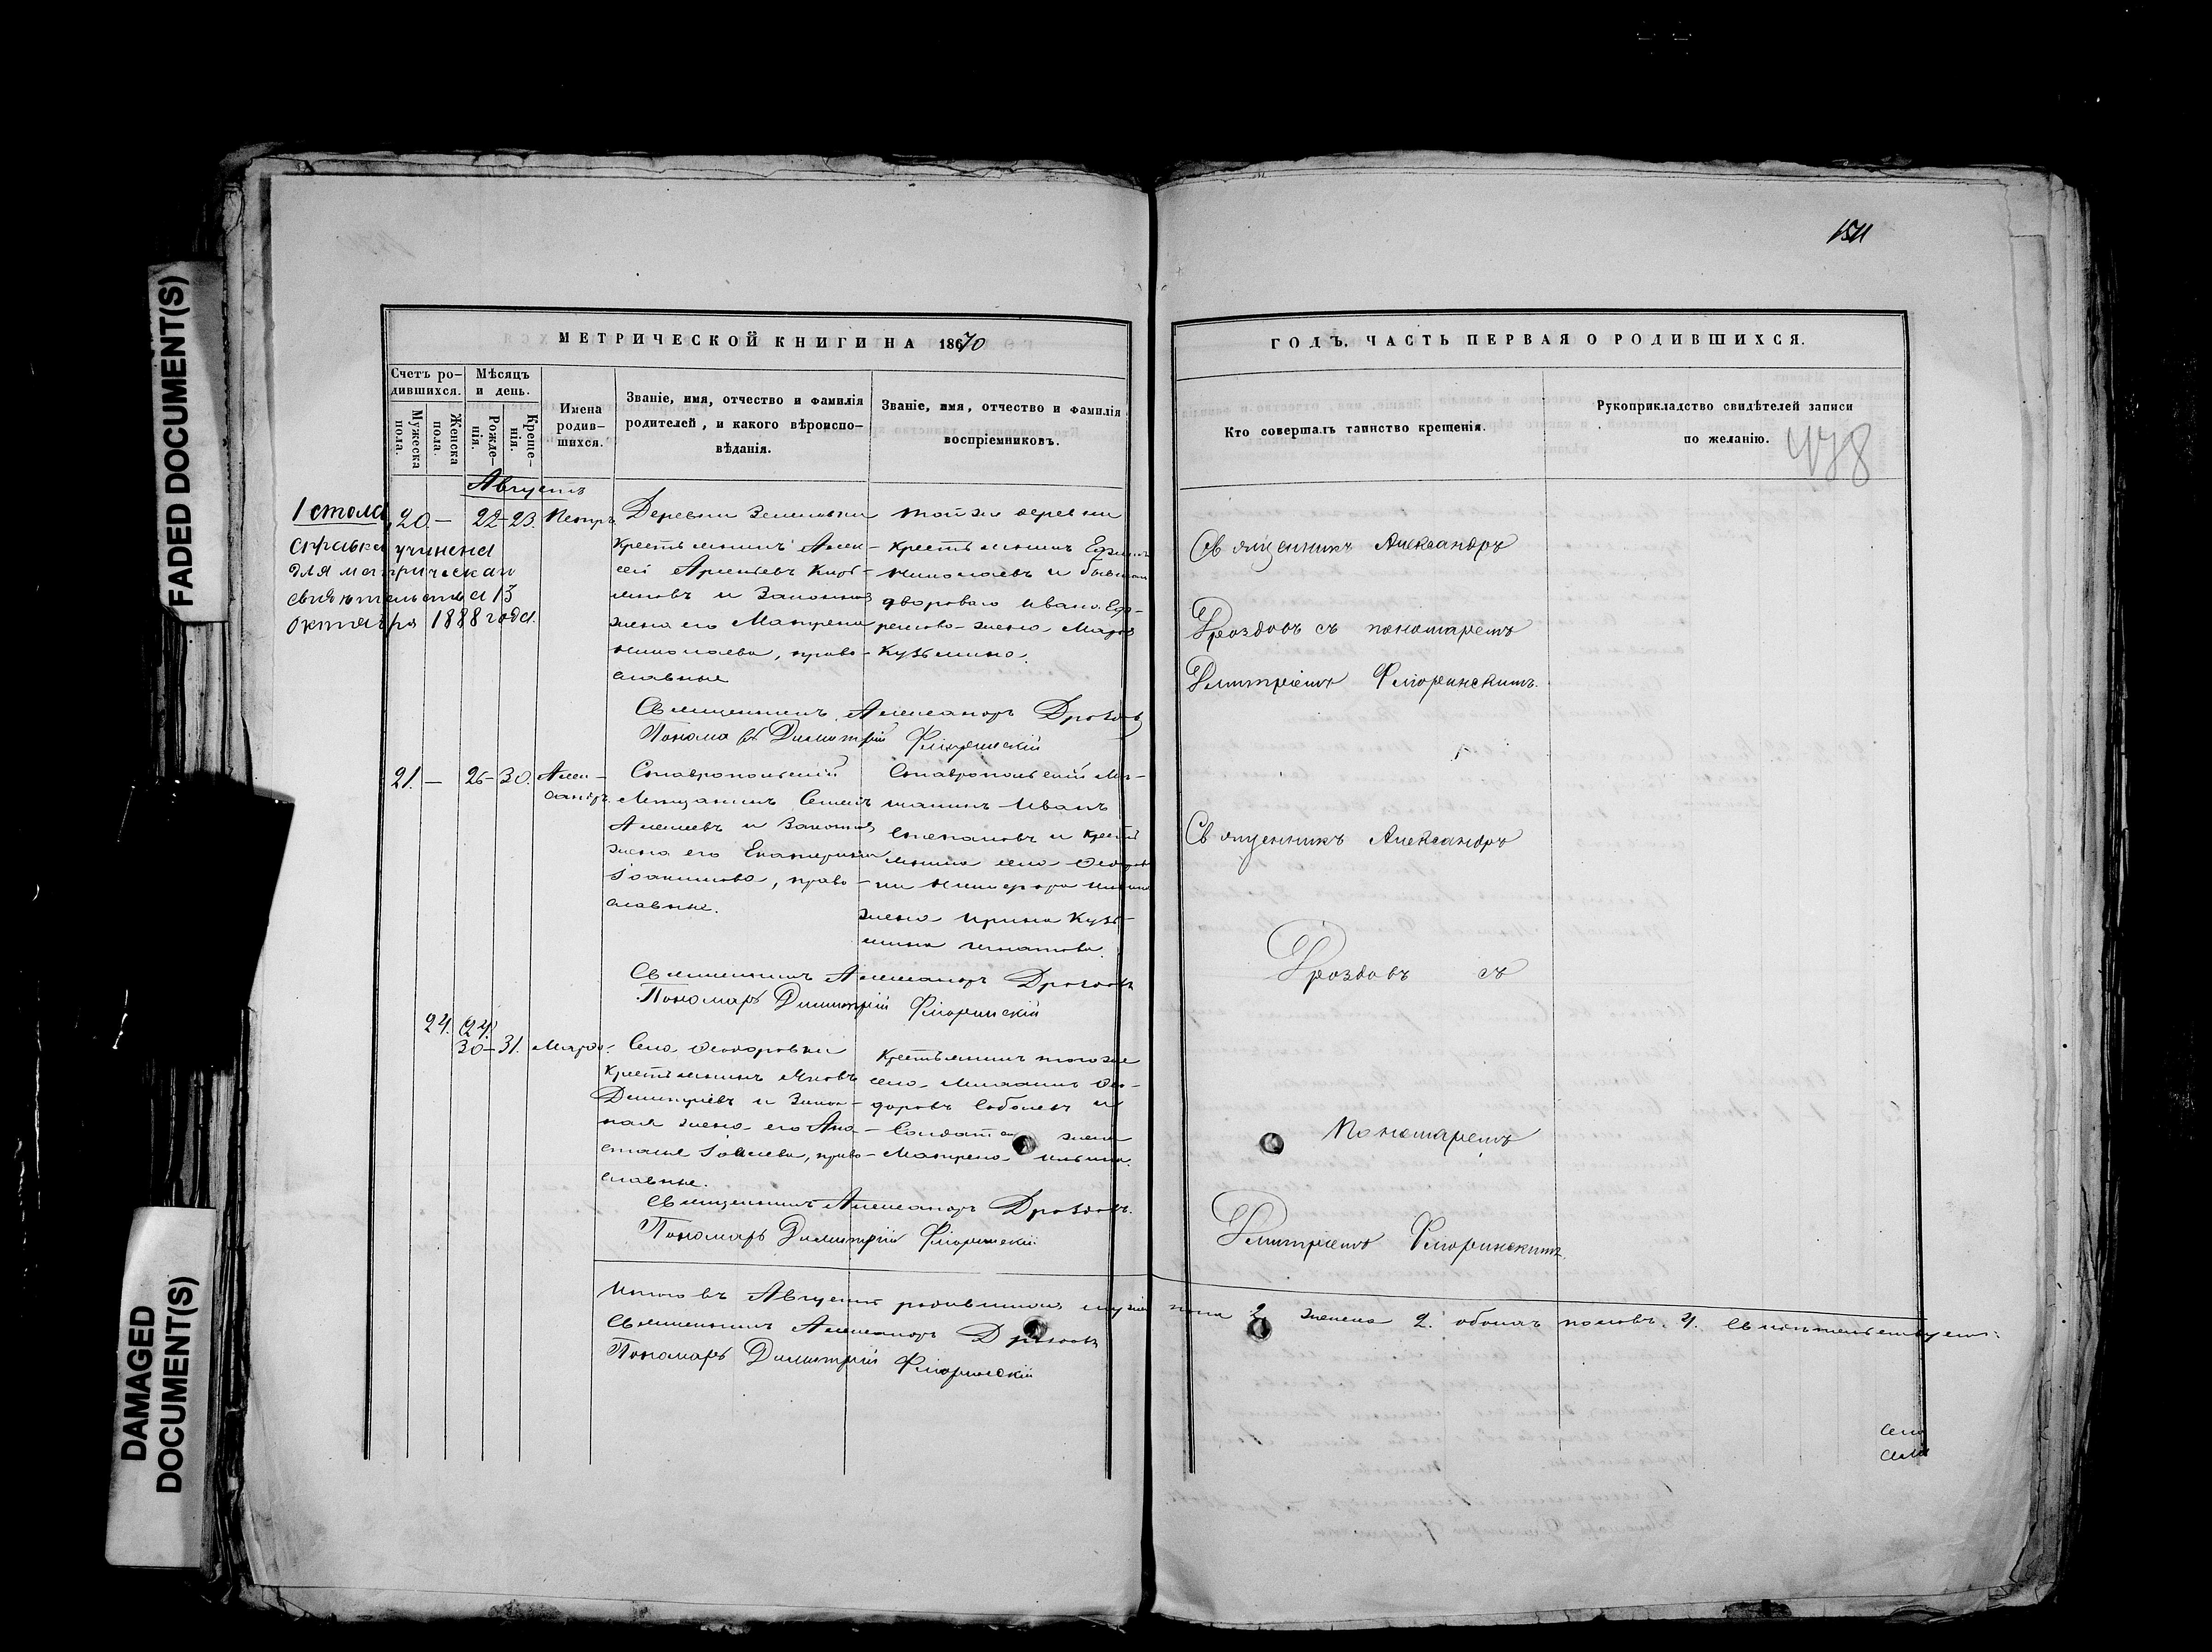 FADED DOCUMENT(S)
DAMAGED
DOCUMENT(S)
МЕТРИЧЕСКОЙ КНИГИ НА 1870
Счетъ ро-
дившихся.
Мужеска
пола.
Женска
пола.
Мѣсяцъ
и день.
Рожде-
нія.
Креще-
нія.
Имена
родив-
шихся.
Званіе, имя, отчество и фамилія
родителей, и какого вѣроиспо-
вѣданія.
Званіе, имя, отчество и фамилія
воспріемниковъ.
Августъ
1 стола
справка учинена
для метрическаго
свидѣтельства 13
октября 1888 года.
20. — 22-23. Петръ
Деревни
крестьянинъ Алек-
сѣй Арсеньевъ
и законная
жена его Матрена
Николаева, право-
славные
той же деревни
крестьянинъ
Николаевъ и
двороваго Ивана
жена Марѳа
Кузьмина.
Священникъ Александръ Дроздовъ
Пономарь Димитрій Флоринскій
21. — 26-30. Алек-
сандръ
Ставропольскій
мѣщанинъ Семенъ
Алексѣевъ и законная
жена его Екатерина
Іоакимова, право-
славные.
Ставропольскій мѣ-
щанинъ Иванъ
Степановъ и кресть
села Ѳедоров
жена Ирина Кузь-
мина
Священникъ Александръ Дроздовъ
Пономарь Димитрій Флоринскій
24. (24)
30-31. Марѳа.
Села Ѳеодоровки
крестьянинъ Яковъ
Димитріевъ и закон-
ная жена его Ана-
стасія Іовлева, право-
славные.
Крестьянинъ того же
села Михаилъ Ѳео-
доровъ Соболевъ и
Солдатская жена
Матрена Ильина.
Священникъ Александръ Дроздовъ.
Пономарь Димитрій Флоринскій
Итого въ Августѣ родившихся муж. пола 2, женска 2. обоихъ половъ 4. Свидѣтельствуемъ:
Священникъ Александръ Дроздовъ
Пономарь Димитрій Флоринскій
ГОДЪ. ЧАСТЬ ПЕРВАЯ О РОДИВШИХСЯ.
Кто совершалъ таинство крещенія.
Рукоприкладство свидѣтелей записи
по желанію.
478
Священникъ Александръ
Дроздовъ съ пономаремъ
Димитріемъ Флоринскимъ.
Священникъ Александръ
Дроздовъ съ
Пономаремъ
Димитріемъ Флоринскимъ.